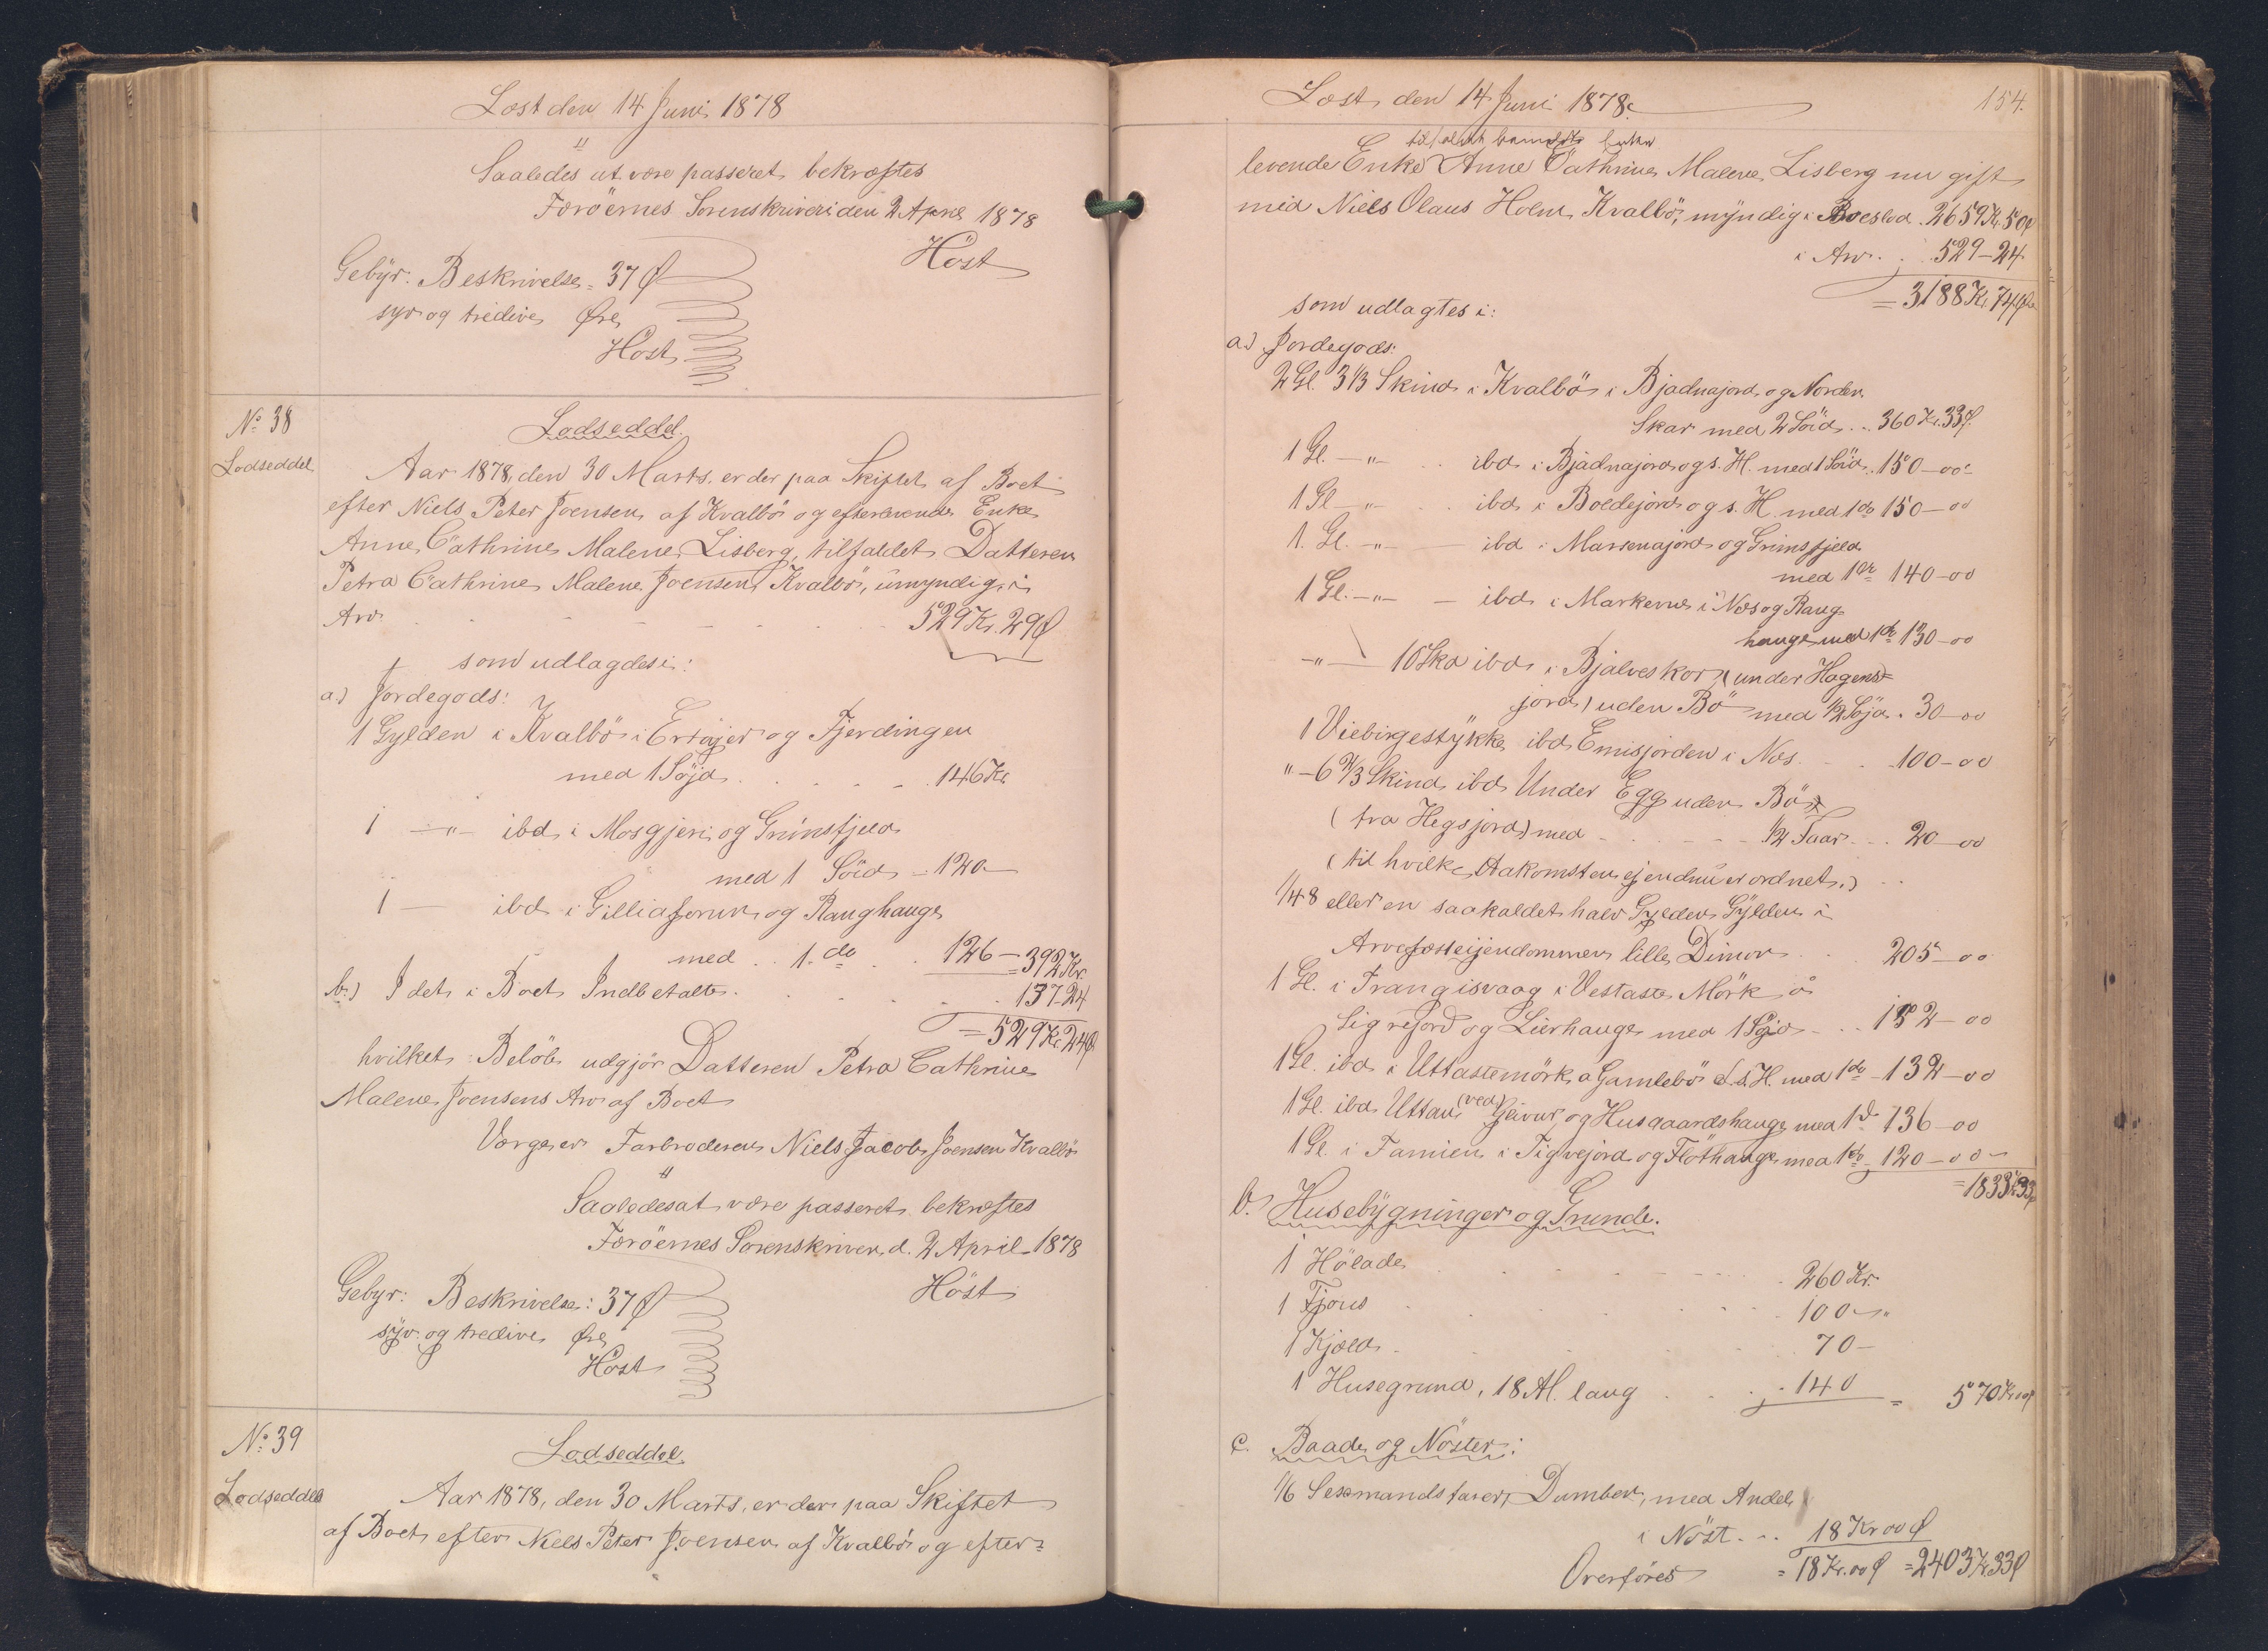 Læst den 14 Juni 1878
"
Saaledes at være passeret bekræftes
Færöernes Sorenskriveri den 2 April 1878
Höst
Gebÿr: Beskrivelse = 37 Ø
syv og tredive Øre
Höst
No 38
Lodseddel
Lodseddel.
Aar 1878, den 30 Marts. er der paa Skiftet af Boet
efter Niels Peter Joensen af Kvalbö og efterlevende Enke
Anne Cathrine Malene Lisberg, tilfaldet Datteren
Petra Cathrine Malene Joensen, Kvalbö, umyndig, i
Arv. 529 Kr. 29 Ø
som udlagdes i:
a.) Jordegods:
1 Gylden i Kvalbö i Ertöjer og Fjerdingen
med 1 Söjd . . . . 146 Kr
1 —"— ibd i Mosgjeri og Grimsfjeld
med 1 Söid - 120 —
1 — ibd i Gilliaforum og Ranghauge
med . . 1. do . . 126 — = 392 Kr.
b.) I det i Boet Indbetalte . . . . 137-24
= 529 Kr 24 Ø
hvilket Belöb udgjör Datteren Petra Cathrine
Malene Joensens Arv af Boet
Værge er Farbroderen Niels Jacob Joensen Kvalbö
"
Saaledes at være passeret bekræftes
Færöernes Sorenskriveri, d. 2 April 1878
Höst
Gebyr: Beskrivelse: 37 Ø
sÿv og tredive Øre
Höst
No 39
Lodseddel
Lodseddel.
Aar 1878, den 30 Marts, er der paa Skiftet
af Boet efter Niels Peter Joensen af Kvalbö og efter=
Læst den 14 Juni 1878.
154.
tilfaldt bemeldte Enke
levende Enke Anne Cathrine Malene Lisberg nu gift
med Niels Olaus Holm, Kvalbö, mÿndig i Boeslod . 2659 Kr. 50 Ø
i Arv . . 529 - 24
= 3188 Kr 74 Øre
som udlagtes i:
a.) Jordegods:
2 Gl. 3 1/3 Skind i Kvalbö i Bjadnajord og Norden
Skar med 2 Söid . . 360 Kr. 33 Ø.
1 Gl. — " — . . ibd i Bjadnajord og s. H. med 1 Söid . 150 — 00
1 Gl — " — . . ibd i Boldejord og s. H. med 1 do 150 — 00
1. Gl. — " — — ibd i Marsenajord og Grimsfjeld
med 1 do 140 - 00
1 Gl. — " — — ibd i Markerne i Næs og Rang
hauge med 1 do 130 — 00
— " — 10 Skd ibd i Bjalveskor (under Hagens=
jord) uden Bö med 1/2 Söjd . 30 — 00
1 Viebirgestÿkke ibd Emisjorden i Næs . . . 100 - 00
" — 6 2/3 Skind ibd Under Egg uden Bö
(fra Hegsjord) med . . . 1/2 Faar . . . 20 — 00
(til hvilke Atakomsten ej endnu er ordnet.) . .
1/48 eller en saakaldet halv Gylden Gÿlden i
Arvefæsteijendommen lille Dimon . . . 205 — 00
1 Gl. i Trangisvaag i Vestaste Mörk å
Sigrejord og Lierhauge med 1 Söjd . . . 132 — 00
1 Gl. ibd i Uttastemörk a Gamlebö s. H. med 1 do - 132 — 00
1 Gl. ibd Uttan (ved) Geirar og Husgaardshauge med 1 do 136 — 00
1 Gl. i Famien i Tigvejord og Flöthauge med 1 do 120 — 00
= 1833 Kr 33 Ø
b. Husebÿgninger og Grunde.
1 Hölade . . . 260 Kr.
1 Fjøs . . . 100 — "
1 Kjæld . . . 70 —
1 Husegrund, 18 Al. lang . . . 140 = 570 Kr 00 Ø
c. Baade og Nöster:
1/6 Sexmandsfarer, Dumben, med Andel
i Nöst . . . 18 Kr 00 Ø
Overföres = 18 Kr. 00 Ø = 2403 Kr 33 Ø